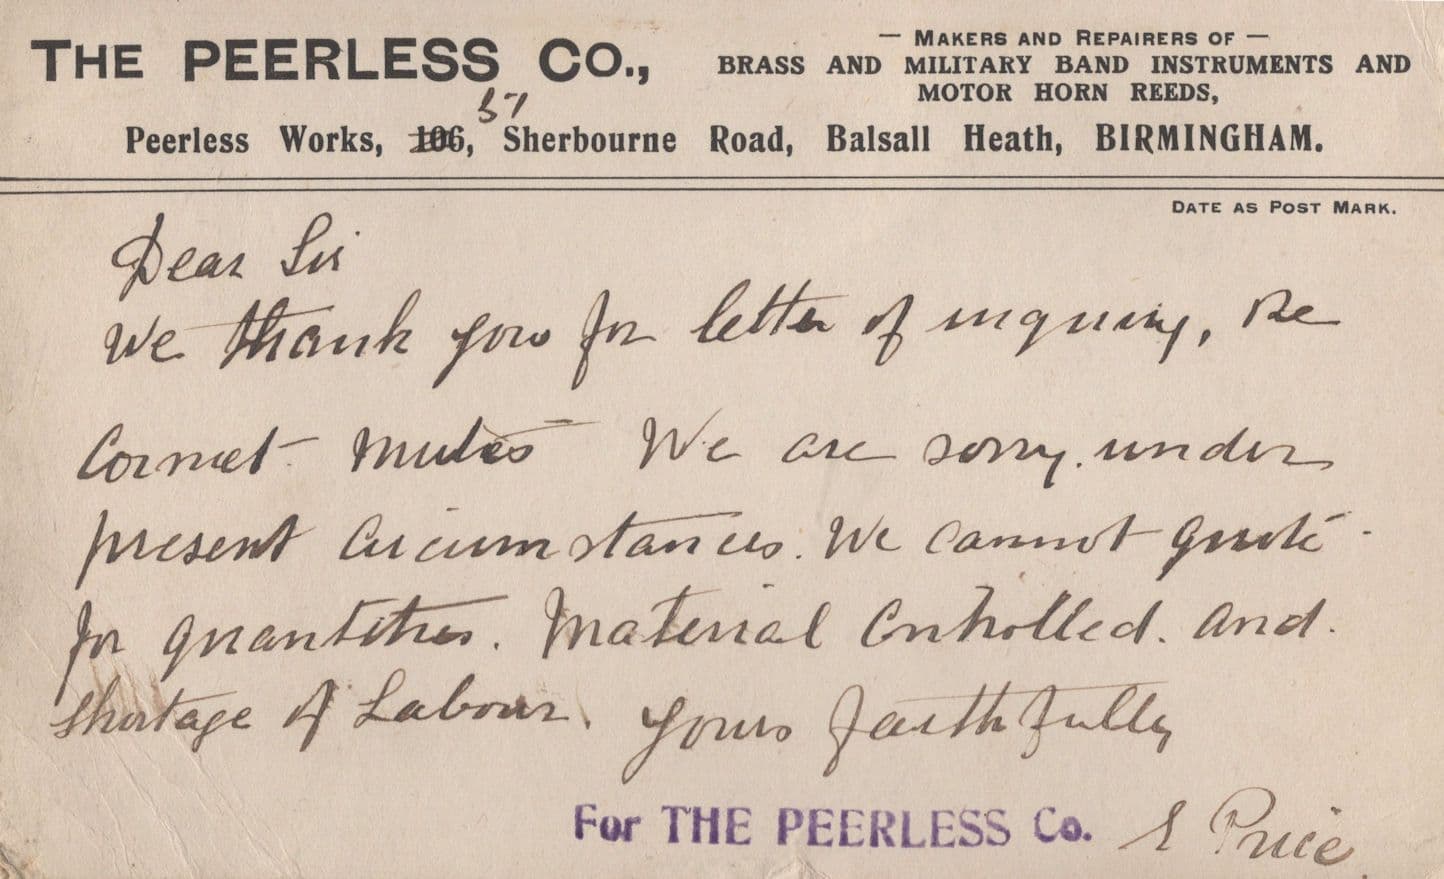 THE PEERLESS CO.,
— MAKERS AND REPAIRERS OF —
BRASS AND MILITARY BAND INSTRUMENTS AND
MOTOR HORN REEDS,
37
Peerless Works, 106, Sherbourne Road, Balsall Heath, BIRMINGHAM.
DATE AS POST MARK.
Dear Sir
We thank you for letter of inquiry, Re
Cornet Mutes We are sorry. under
present circumstances. We cannot quote
for quantities. Material Controlled. and.
Shortage of Labour. Yours faithfully
For THE PEERLESS Co. E Price